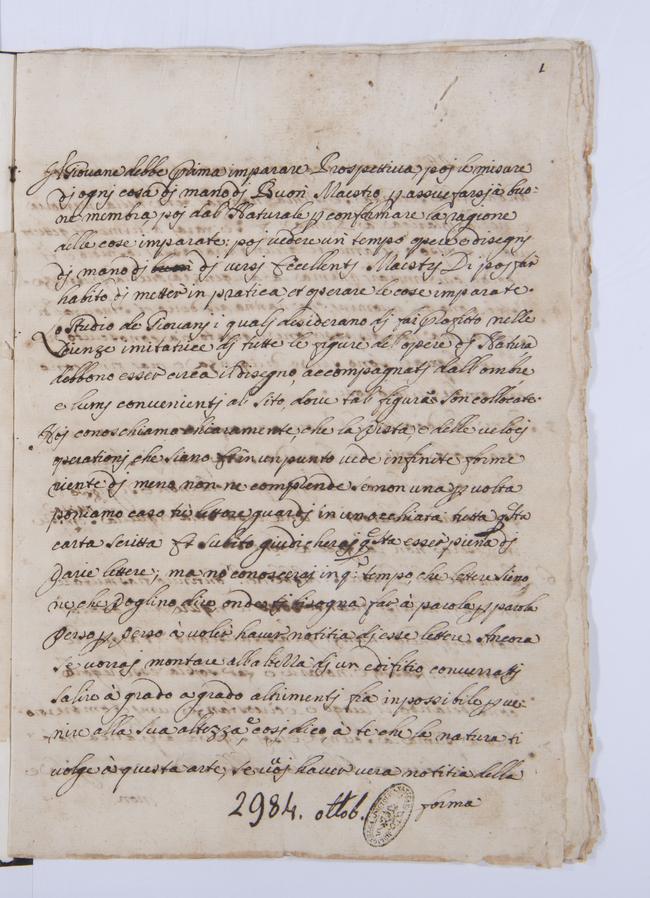 1
Il Giovane debbe Prima imparare Prospettiva, poj le misure
dj ognj cosa dj mano dj Buon Maestro, p assuefarsj à buo:
ne membra, poj dal Naturale p confermare la ragione
delle cose imparate, poj vedere un tempo opere e disegnj
dj mano dj dj versj Eccellentj Maestrj Di poj far
habito dj metter in pratica et operare le cose imparate.
Lo Studio de Giovanj i qualj desiderano dj far Profitto nelle
Scienze imitatrice dj tutte le figure de l'opere dj Natura
debbono esser circa il disegno, accompagnatj dall'ombre
e lumj convenientj al sito, dove tal figura son collocate.
Noj conoschiamo chiaramente, che la Vista è delle velocj
operationj che siano et in un punto vede infinite forme
niente dj meno non ne comprende se non una p volta
poniamo caso tu lettore guardj in un occhiata tutta q.sta
carta scritta et subito giudicheraj q.sta esser piena dj
Varie lettere; ma nō conosceraj in q.o tempo, che lettere sieno,
ne, che Voglino dire onde ti bisogna far à parola p parola
Verso p Verso à voler haver notitia dj esse lettere Ancora
se vorraj montare alla dj un edifitio converrattj
salire à grado a grado altrimentj fia inpossibile p ve:
nire alla sua altezza, e cosj dico à te che la natura ti
volge à questa arte, se vuoj haver vera notitia delle
forma
2984. ottob.